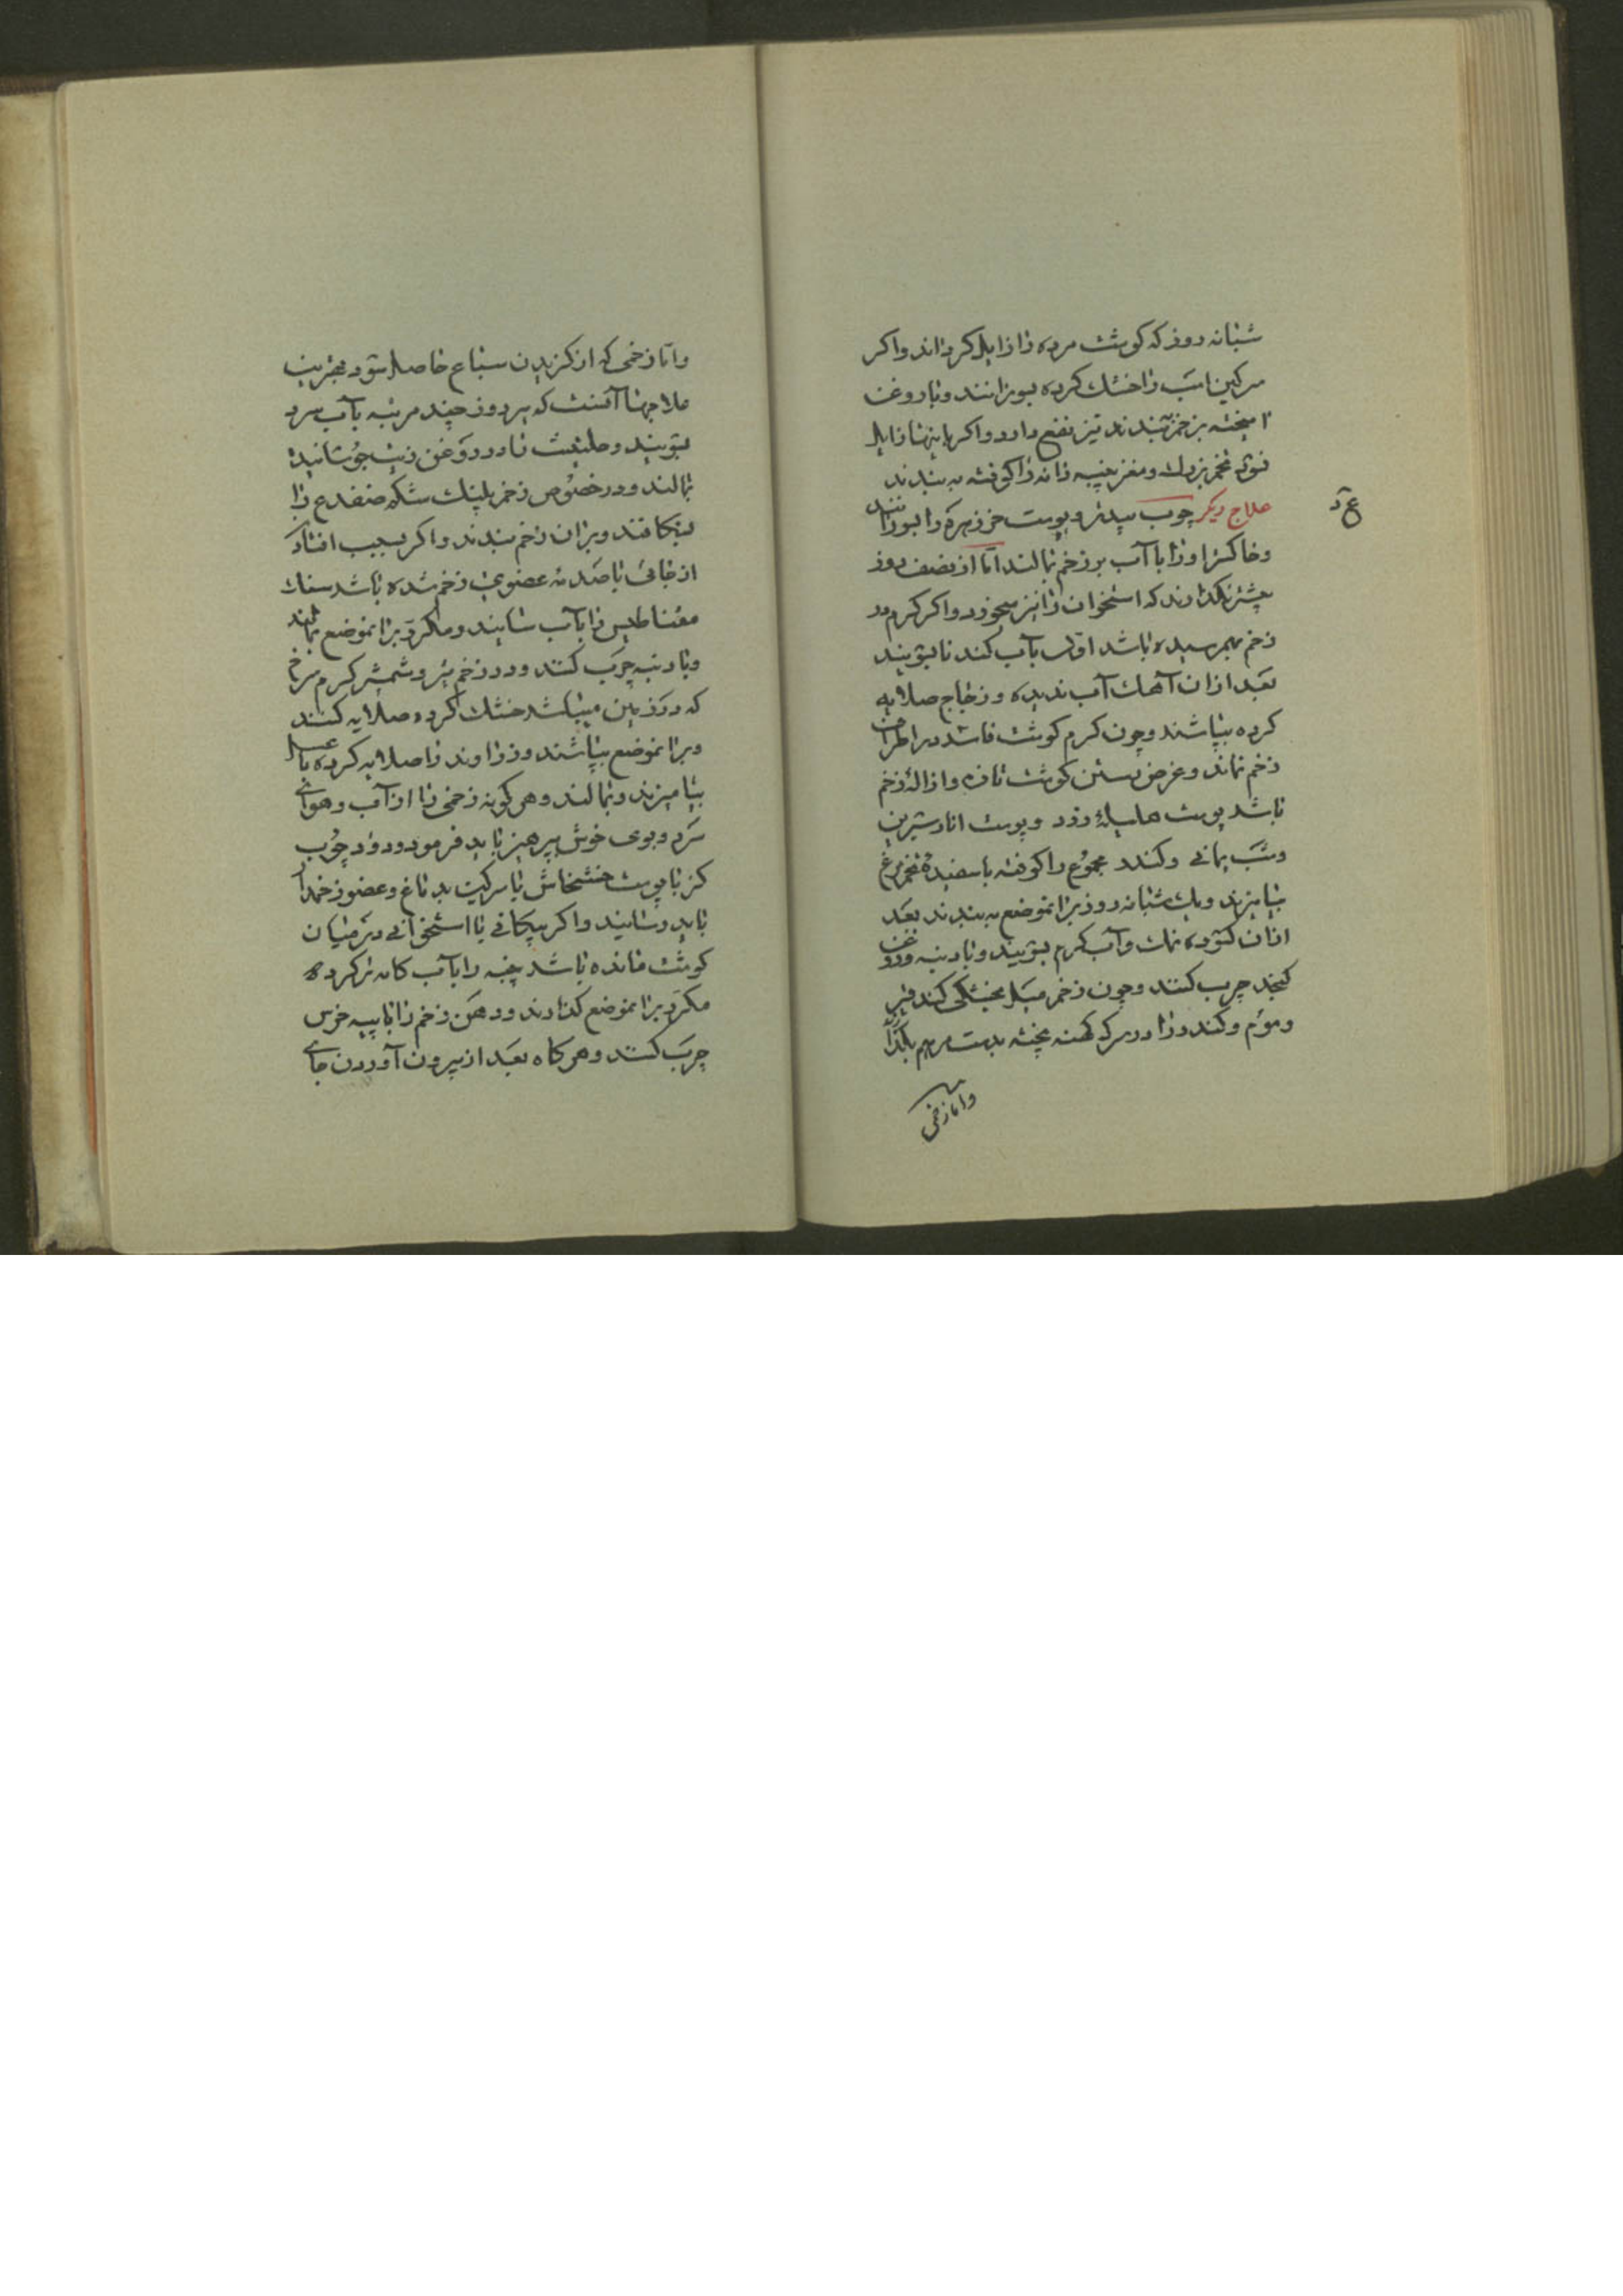 شبانه روز که گوشت مرده را زایل گرداند و اگر
سرگین اسب را خشک کرده بسوزانند و با روغن
امیخته بر زخم بندند نیز نفع دارد و اگر باینها زایل
نشود تخم بزرک و مغز پنبه دانه را کوفته به بندند
علاج دیگر چوب بید تر و پوست خرزهره را بسوزانند
ع د
و خاکستر او را با آب بر زخم بمالند اما از نصف روز
بیشتر نگذارند که استخوان را نیز میخورد و اگر کرم در
زخم بهم رسیده باشد اول بآب گندنا بشویند
بعد ازان آهک آب ندیده و زجاج صلایه
کرده بپاشند و چون کرم گوشت فاسد در اطراف
زخم نماند و غرض بستن گوشت تازه و ازالهٔ زخم
باشد پوست هلیلهٔ زرد و پوست انار شیرین
و شب یمانی و کندر مجموع را کوفته با سفیدهٔ تخم مرغ
بیامیزند و یک شبانه روز بر انموضع به بندند بعد
ازان گشوده نمک و آب گرم بشویند و با دنبه و روغن
کنجد چرب کنند و چون زخم میل بخشکی کند قیر
و موم و کندر را در سرکه کهنه پخته بدست مرهم بگذارند
و اما زخمی
و اما زخمی که از گزیدن سباع حاصل شود مجرب
علاجها آنست که هر روز چند مرتبه بآب سرد
بشویند و حلتیت را در روغن زیت جوشانیده
بمالند و در خصوص زخم پلنک شکم ضفدع را
بشکافند و بر ان زخم بندند و اگر بسبب افتادن
از جائی یا صدمه عضوی زخم شده باشد سنک
مغناطیس را بآب سایند و مکرر بر انموضع بمالند
و با دنبه چرب کنند و در زخم تیر و شمشیر کرم سرخ
که در زمین میباشد خشک کرده صلایه کنند
و بر انموضع بپاشند و زراوند را صلایه کرده با عسل
بیامیزند و بمالند و هر گونه زخمی را از آب و هوای
سرد و بوی خوش پرهیز باید فرمود و دود چوب
گز یا پوست خشخاش یا سرگین بدماغ و عضو زخمدار
باید رسانید و اگر پیکانی یا استخوانی در میان
گوشت مانده باشد پنبه را بآب کامه تر کرده
مکرر بر انموضع گذارند و دهن زخم را با پیه خرس
چرب کنند و هر گاه بعد از بیرون آوردن جای